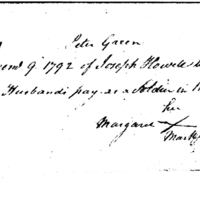 Peter Green
9 1792 of Joseph Howell
Husbands pay as a Soldier in
her
Margaret X
Mark